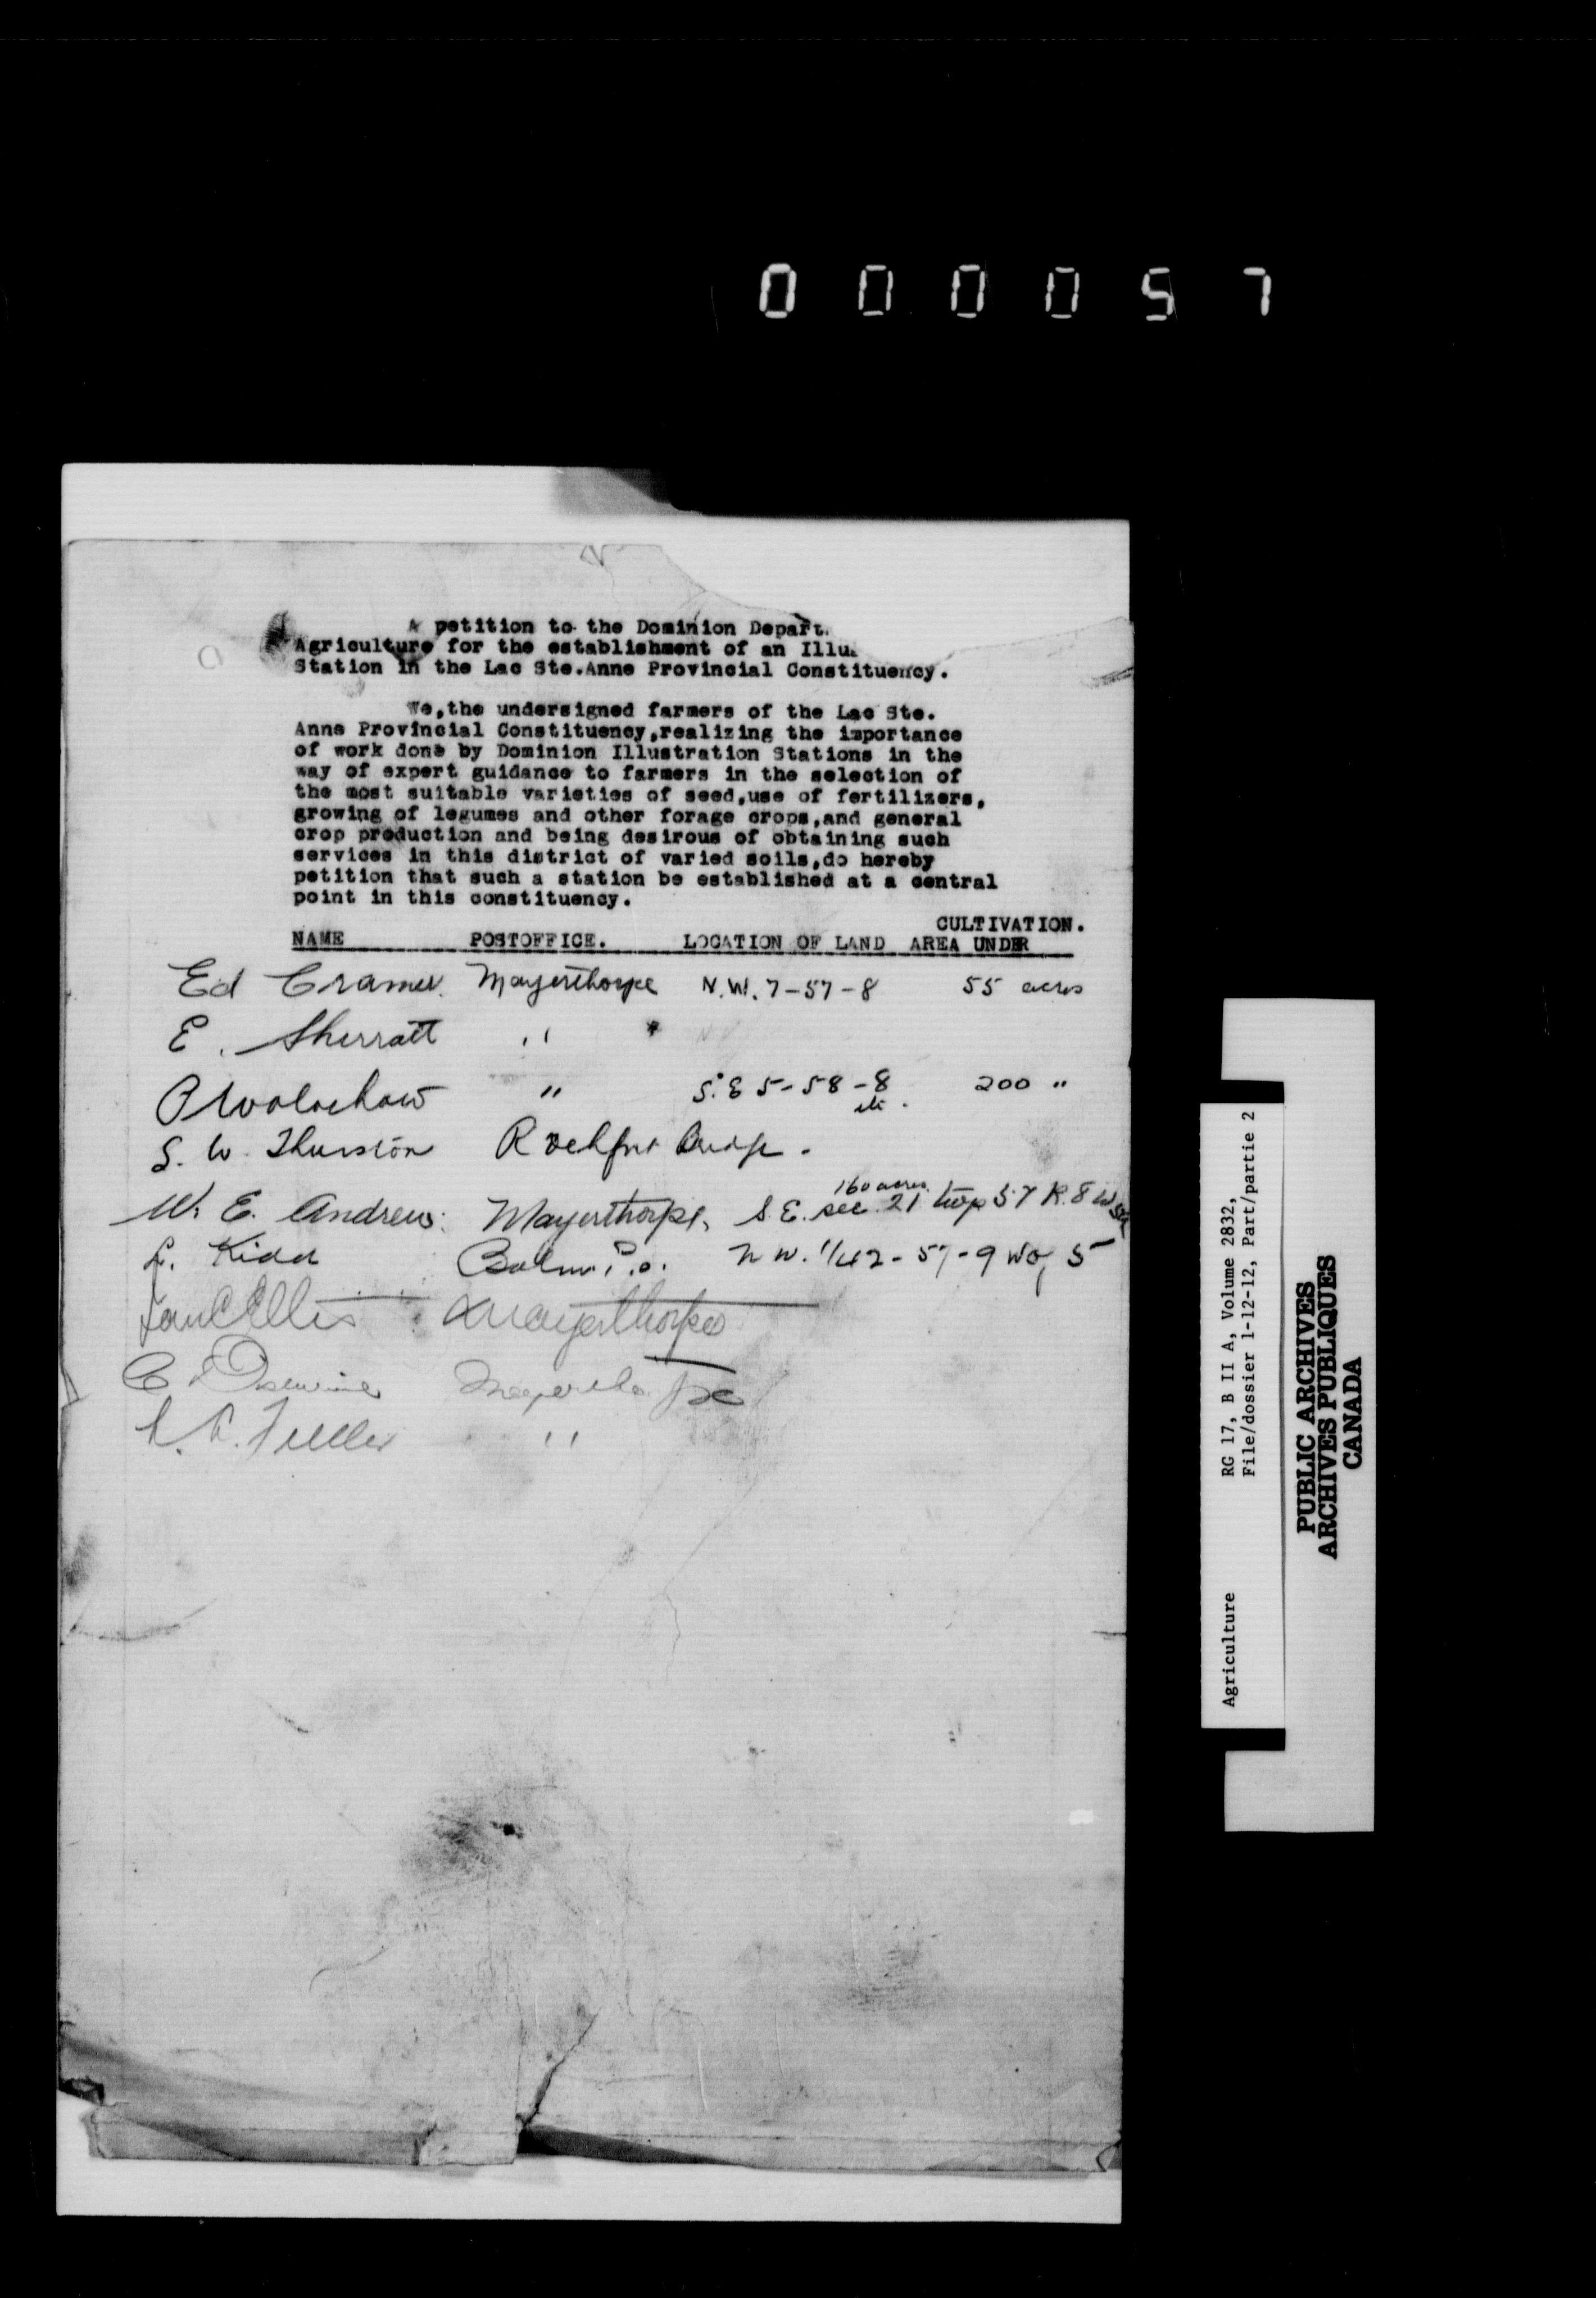 000057
A petition to the Dominion Depart.
Agriculture for the establishment of an Illu
Station in the Lac Ste.Anne Provincial Constituency.
We,the undersigned farmers of the Lac Ste.
Anne Provincial Constituency,realizing the importance
of work done by Dominion Illustration Stations in the
way of expert guidance to farmers in the selection of
the most suitable varieties of seed,use of fertilizers,
growing of legumes and other forage crops,and general
crop production and being desirous of obtaining such
services in this district of varied soils,do hereby
petition that such a station be established at a central
point in this constituency.
CULTIVATION.
NAME POSTOFFICE. LOCATION OF LAND AREA UNDER
Ed Cramer. Mayerthorpe N.W. 7-57-8 55 acres
E. Sherratt "
" S.E 5-58-8 200 "
S. W. Thurston Rochfort Bridge.
160 acres
W. E. Andrews. Mayerthorpe, S.E. sec. 21 twp 57 R. 8
L. Kidd P.o. N W. 1/4 2-57-9 W of 5
Ellis Mayerthorpe
Mayerthorpe
Fuller "
Agriculture RG 17, B II A, Volume 2832,
File/dossier 1-12-12, Part/partie 2
PUBLIC ARCHIVES
ARCHIVES PUBLIQUES
CANADA